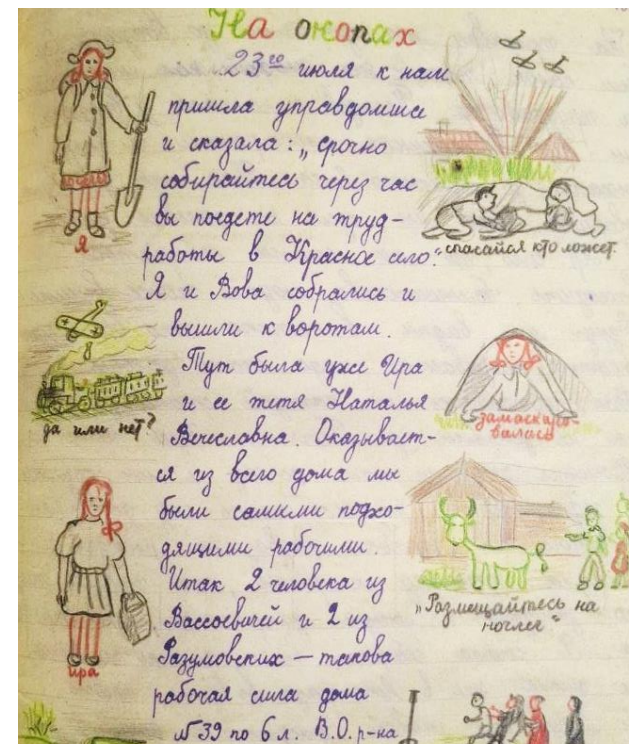 На окопах
23го июля к нам
пришла управдомша
и сказала: „срочно
собирайтесь через час
вы поедете на труд-
работы в Красное село."
Я и Вова собрались и
вышли к воротам.
Тут была уже Ира
и ее тетя Наталья
Вечеславна. Оказывает-
ся из всего дома мы
были самыми подхо-
дящими рабочими.
Итак 2 человека из
Вассоевичей и 2 из
Разумовских — такова
рабочая сила дома
№39 по 6 л. В.О. р-на
Я
да или нет?
ира
спасайся кто может.
замаскиро-
валась
„Размещайтесь на
ночлег"